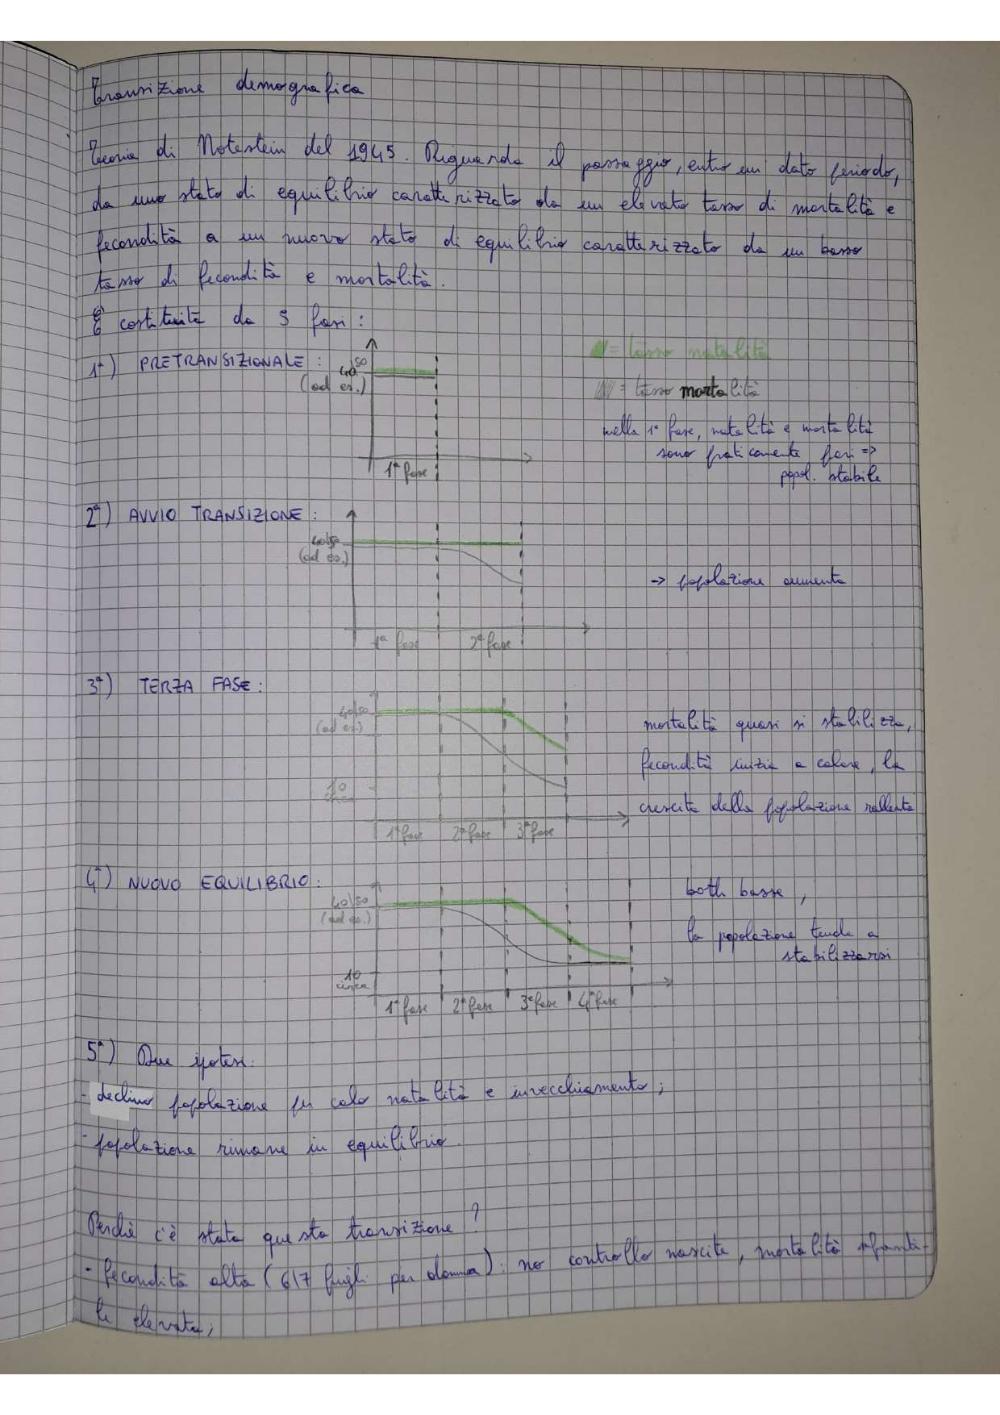 Transizione demografica
Teoria di Notestein del 1945. Riguarda il passaggio, entro un dato periodo,
da uno stato di equilibrio caratterizzato da un elevato tasso di mortalità e
fecondità a un nuovo stato di equilibrio caratterizzato da un basso
tasso di fecondità e mortalità.
È costituita da 5 fasi:
1ª) PRETRANSIZIONALE:
40/50
(ad es.)
1ª fase
= tasso natalità
= tasso mortalità
nella 1ª fase, natalità e mortalità
sono praticamente pari =>
popol. stabile
2ª) AVVIO TRANSIZIONE:
40/50
(ad es.)
1ª fase 2ª fase
-> popolazione aumenta
3ª) TERZA FASE:
40/50
(ad es.)
10
circa
1ª fase 2ª fase 3ª fase
mortalità quasi si stabilizza,
fecondità inizia a calare, la
crescita della popolazione rallenta
4ª) NUOVO EQUILIBRIO:
40/50
(ad es.)
10
circa
1ª fase 2ª fase 3ª fase 4ª fase
both basse,
la popolazione tende a
stabilizzarsi
5ª) Due ipotesi:
- declino popolazione per calo natalità e invecchiamento;
- popolazione rimane in equilibrio.
Perché c'è stata questa transizione?
- fecondità alta (6/7 figli per donna): no controllo nascite, mortalità infanti-
le elevata;